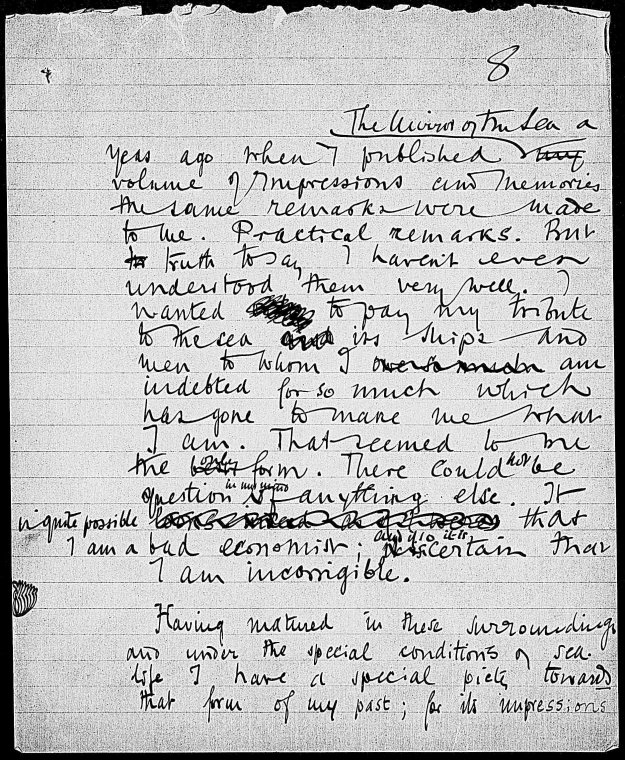 8
The Mirror of the Sea a
years ago when I published my
volume of Impressions and Memories
the same remarks were made
to me. Practical remarks. But
to truth to say I haven't even
understood them very well. I
wanted to pay my tribute
to the sea and its ships and
men to whom I owe so much am
indebted for so much which
has gone to make me what
I am. That seemed to me
the only form. There could not be
in my mind
question of anything else. It
is quite possible that
and it is
I am a bad economist; certain that
I am incorrigible.
Having matured in these surroundings
and under the special conditions of sea-
life I have a special piety towards
that form of my past; for its impressions